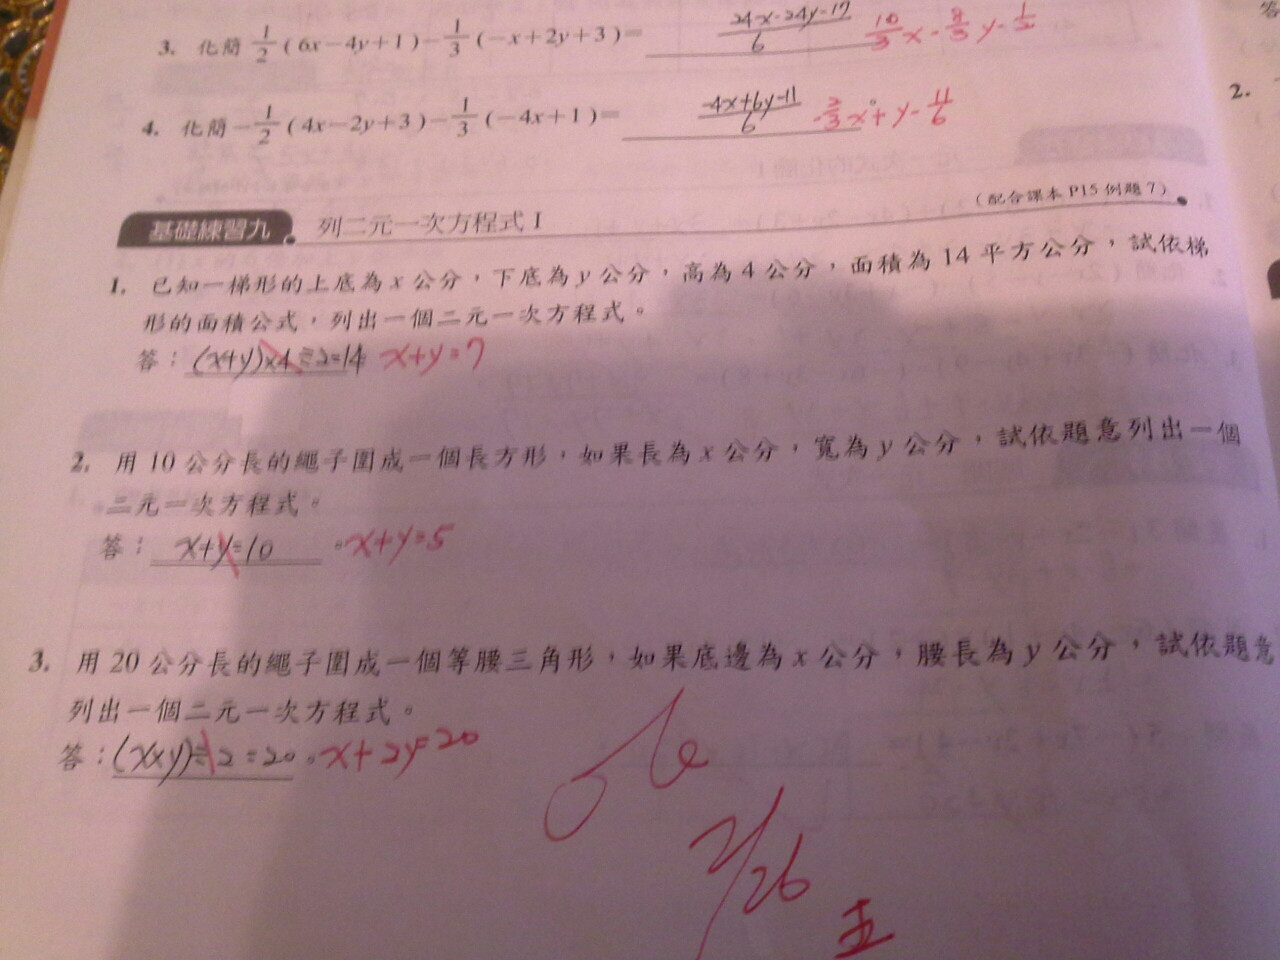 3. 化簡 1/2 ( 6x－4y＋1 )－1/3 (－x＋2y＋3 )＝ 24x-24y-17/6 10/3x-8/3y-1/2
4. 化簡－1/2 ( 4x－2y＋3 )－1/3 (－4x＋1 )＝ -4x+6y-11/6 -2/3x+y-11/6
2.
基礎練習九 列二元一次方程式 I （配合課本 P15 例題 7）
1. 已知一梯形的上底為 x 公分，下底為 y 公分，高為 4 公分，面積為 14 平方公分，試依梯
形的面積公式，列出一個二元一次方程式。
答：(x+y)×4÷2=14 x+y=7
2. 用 10 公分長的繩子圍成一個長方形，如果長為 x 公分，寬為 y 公分，試依題意列出一個
二元一次方程式。
答：x+y=10。x+y=5
3. 用 20 公分長的繩子圍成一個等腰三角形，如果底邊為 x 公分，腰長為 y 公分，試依題意
列出一個二元一次方程式。
答：(x×y)÷2=20。x+2y=20
2/26